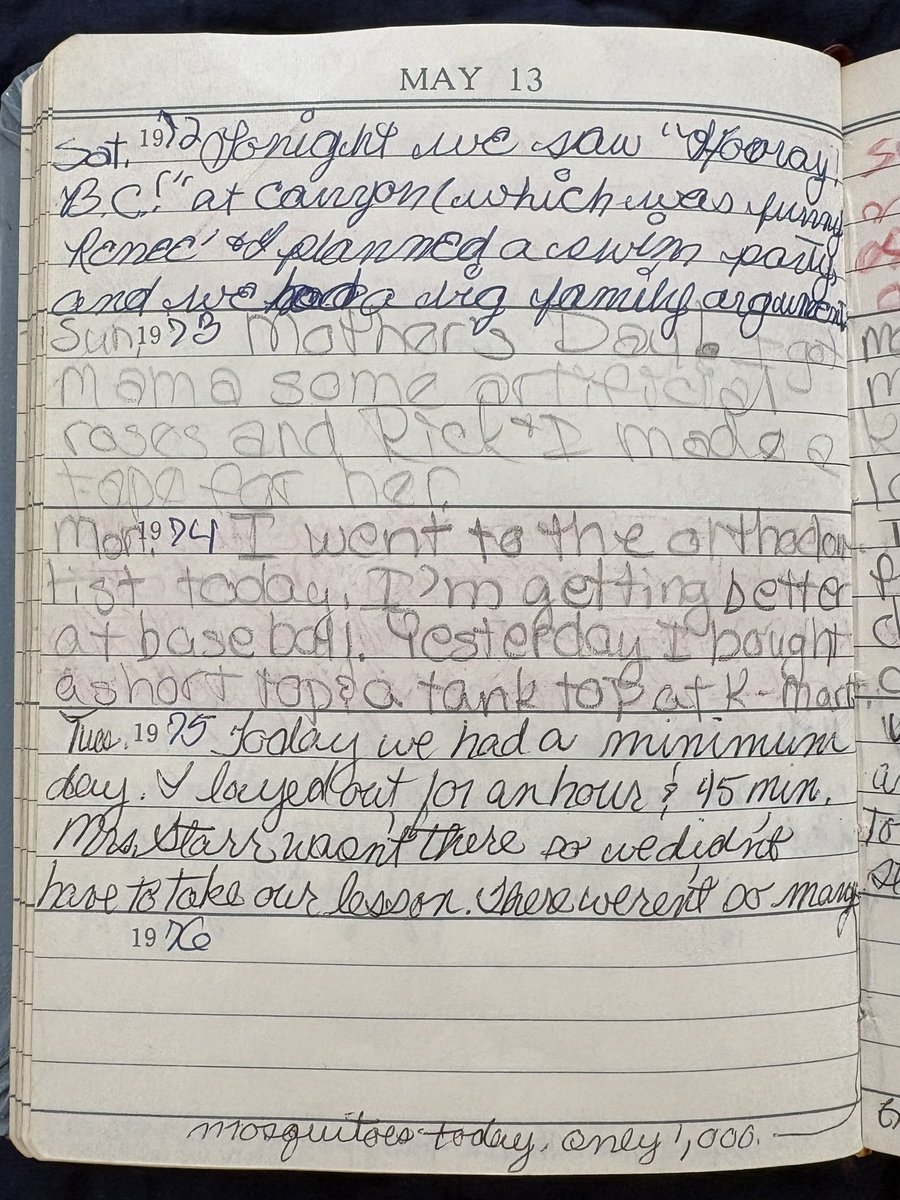 MAY 13
Sat. 1972 Tonight we saw "Hooray!
B.C.!" at Canyon (which was funny
Renee' & I planned a swim party,
and we had a big family argument
Sun. 1973 Mother's Day! I got
mama some artificial
roses and Rick & I made a
tape for her.
Mon. 1974 I went to the orthadon-
tist today. I'm getting better
at baseball. Yesterday I bought
a short top & a tank top at K-Mart.
Tues. 1975 Today we had a minimum
day. I layed out for an hour & 45 min.
Mrs. Starr wasn't there so we didn't
have to take our lesson. There weren't so many
1976
mosquitoes today. only 1,000.